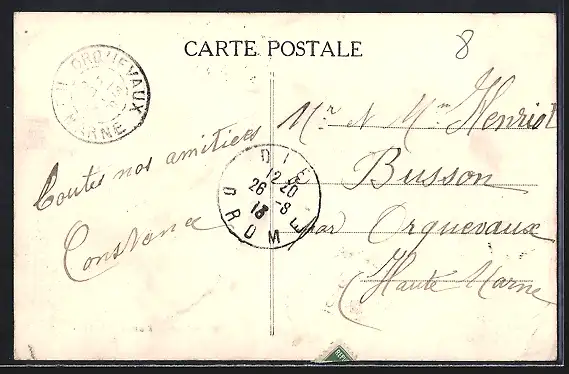 CARTE POSTALE
8
ORQUEVAUX
Hte MARNE
Toutes nos amitiées
Constance
DIE
12 20
26 -8
13
DROME
Mr & Mme Henriot
Busson
par Orquevaux
(Haute Marne